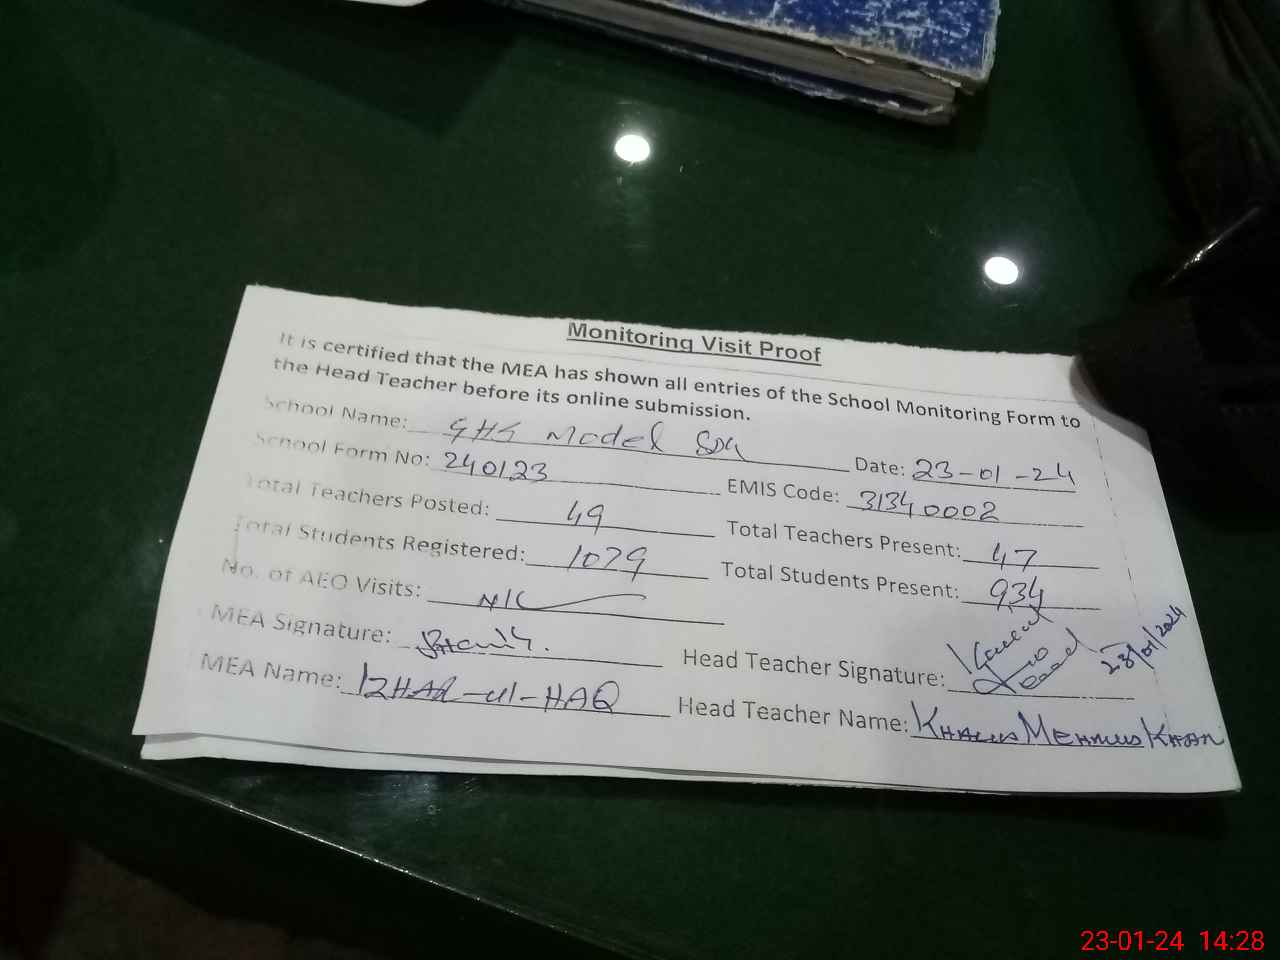 Monitoring Visit Proof
It is certified that the MEA has shown all entries of the School Monitoring Form to
the Head Teacher before its online submission.
School Name: GHS Model Date: 23-01-24
School Form No: 240123 EMIS Code: 31340002
Total Teachers Posted: 49 Total Teachers Present: 47
Total Students Registered: 1079 Total Students Present: 934
No. of AEO Visits: NIL
MEA Signature: Head Teacher Signature: 23/01/2024
MEA Name: IZHAR-ul-HAQ Head Teacher Name: KHALID MEHMUD KHAN
23-01-24 14:28